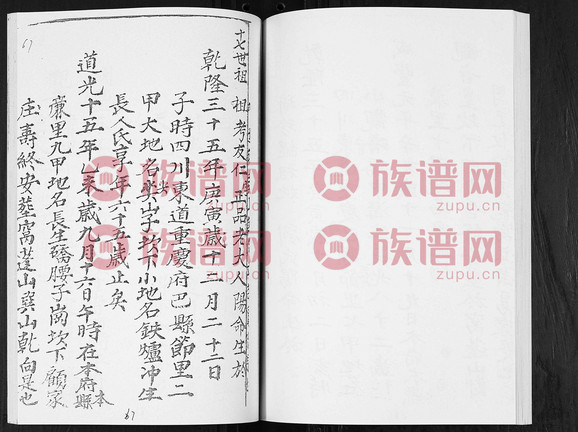 十七世祖 祖考友仁正品老大人陽命生於
乾隆三十五年庚寅歲十二月二十二日
子時四川東道重慶府巴縣節里二
甲大地名尖山子坎下小地名鉄爐冲生
長人氏享年六十五歲止矣
道光十五年乙未歲九月十六日午時在本府縣本
廉里九甲地名長生橋腰子崗坎下顧家
庄壽終安塟窩蓬山巽山乾向是也
67
67
族谱网
zupu.cn
族谱网
zupu.cn
族谱网
zupu.cn
族谱网
zupu.cn